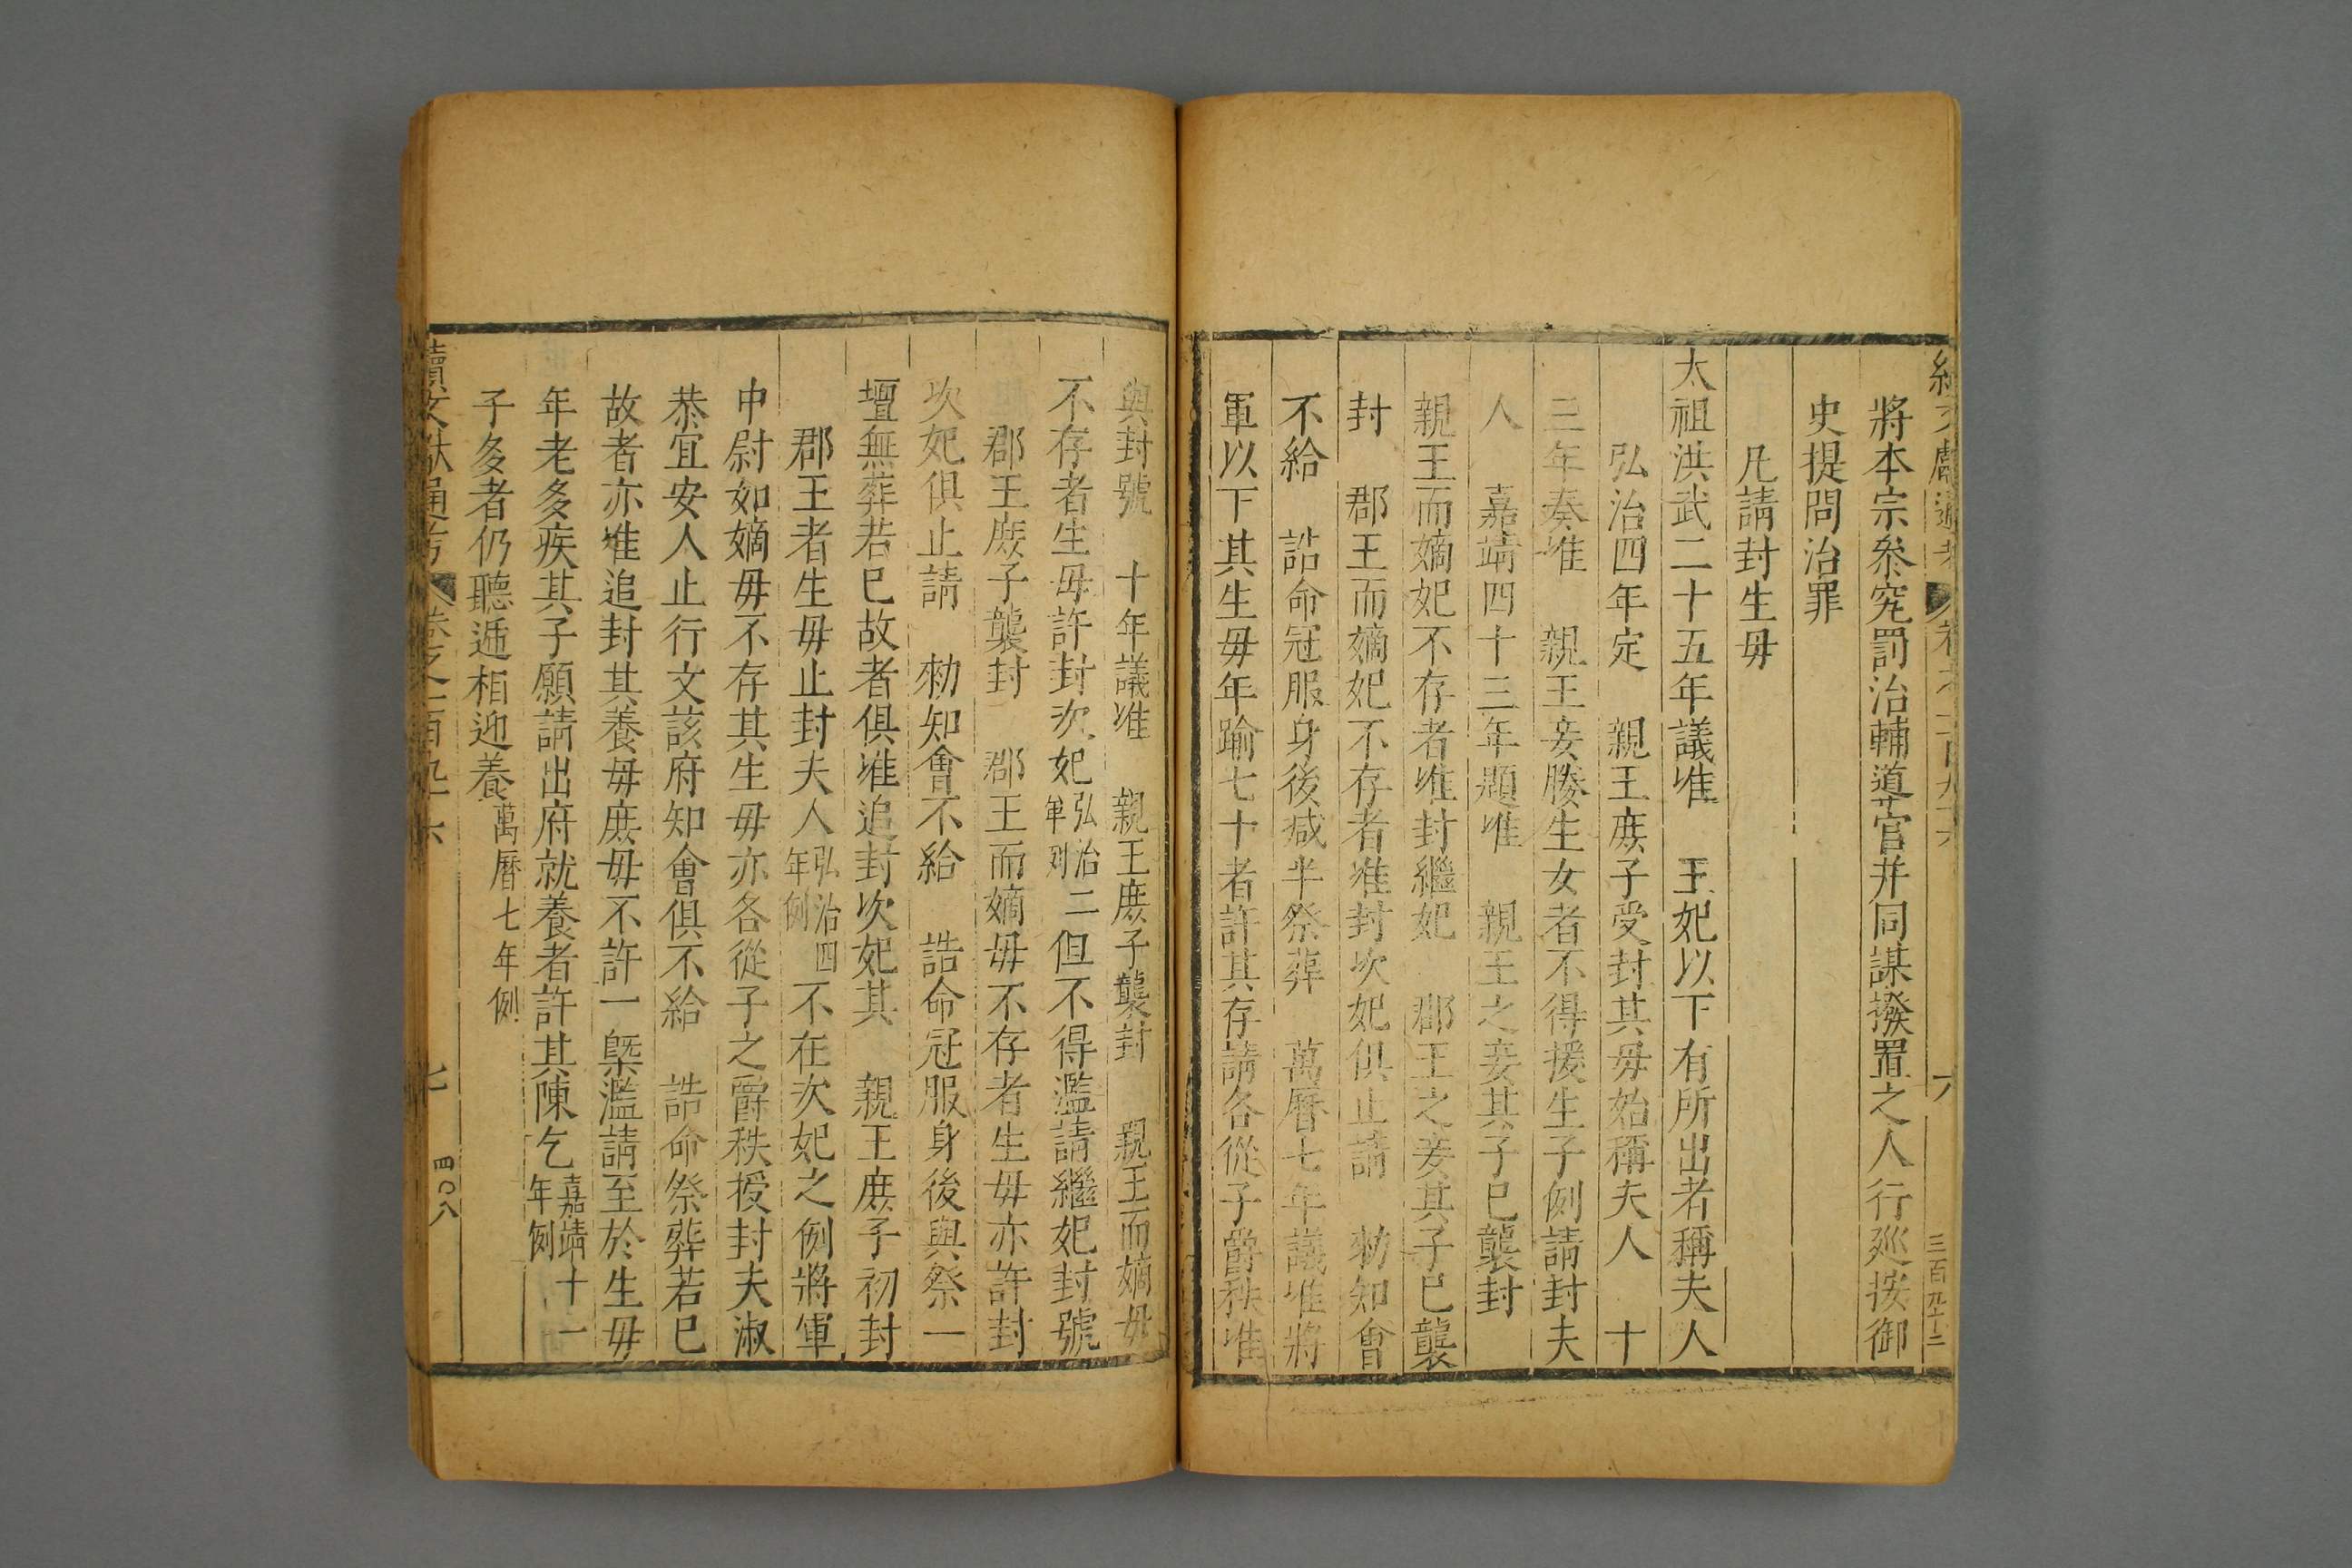 將本宗叅究罰治輔道官并同謀撥置之人行廵按御
史提問治罪
凡請封生毋
太祖洪武二十五年議准　王妃以下有所出者稱夫人
弘治四年定　親王庶子受封其毋始稱夫人　十
三年奏准　親王妾媵生女者不得援生子例請封夫
人　嘉靖四十三年題准　親王之妾其子已襲封
親王而嫡妃不存者准封繼妃　郡王之妾其子已襲
封　郡王而嫡妃不存者准封次妃俱止請　勑知會
不給　誥命冠服身後减半祭葬　萬曆七年議准將
軍以下其生毋年踰七十者許其存請各從子爵秩准
與封號　十年議准　親王庶子襲封　親王而嫡毋
不存者生毋許封次妃弘治二年例但不得濫請繼妃封號
郡王庶子襲封　郡王而嫡毋不存者生毋亦許封
次妃俱止請　勑知會不給　誥命冠服身後與祭一
壇無葬若已故者俱准追封次妃其　親王庶子初封
郡王者生毋止封夫人弘治四年例不在次妃之例將軍
中尉如嫡毋不存其生毋亦各從子之爵秩授封夫淑
恭宜安人止行文該府知會俱不給　誥命祭葬若已
故者亦准追封其養毋庶毋不許一槩濫請至於生毋
年老多疾其子願請出府就養者許其陳乞嘉靖十一年例
子多者仍聽遞相迎養萬曆七年例
續文獻通考　卷之二百九十六　七　四〇八